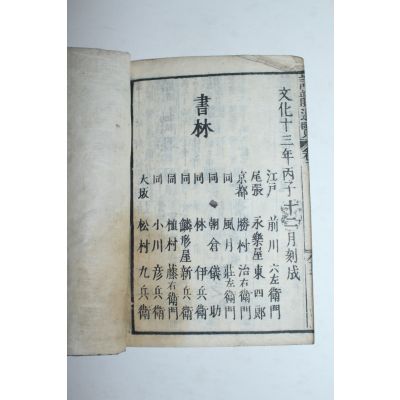 文化十三年丙子十二月刻成
書林
江戸 前川六左衛門
尾張 永樂屋東四郎
京都 勝村治右衛門
同 風月莊左衛門
同 朝倉儀助
同 林伊兵衛
同 鱗形屋新兵衛
同 植村藤右衛門
同 小川彦兵衛
大坂 松村九兵衛